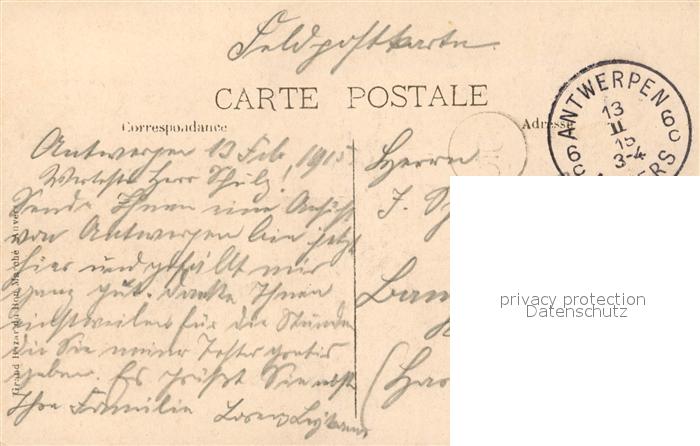 Feldpostkarte
CARTE POSTALE
Correspondance
Adresse
ANTWERPEN
6c 6c
13
II
15
3-4
Antwerpen 13 Feb. 1915
Werter Herr Schulz!
Sende Ihnen eine Ansicht
von Antwerpen bin jetzt
hier und gefällt mir
ganz gut. Danke Ihnen
einstweilen für die Stunden
die Sie meiner Tochter gratis
geben. Es grüßt Sie nebst
Ihre Familie
Herrn
J.
(Har
Grand Bazar du Bon Marché Anvers
privacy protection
Datenschutz